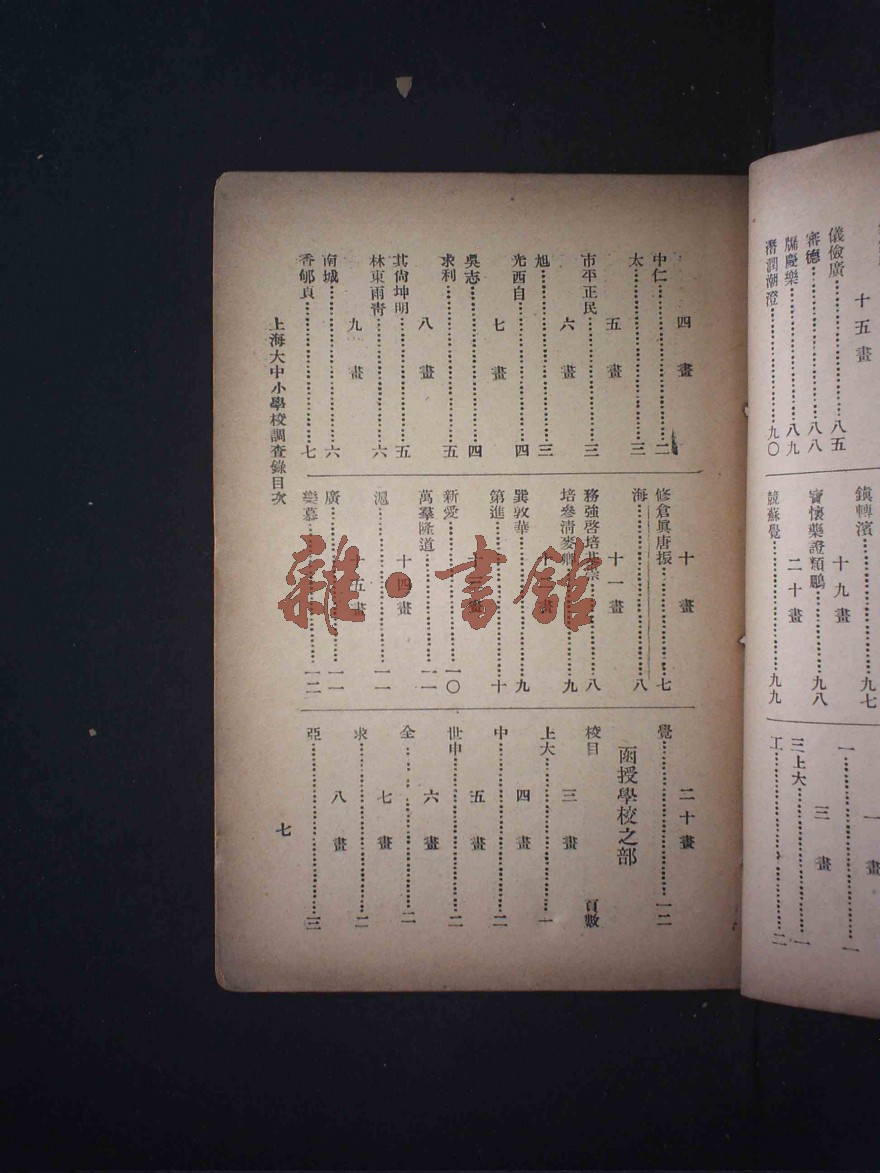 儀儉廣……八五
審德……八八
牖慶樂……八九
潛潤潮澄……九〇
十五畫
鎮轉濱……九七
十九畫
寶懷藥證類鵬……九八
二十畫
競蘇覺……九九
一畫
一……一
三畫
三上大……一
工……二
四畫
中仁……二
太……三
五畫
市平正民……三
六畫
旭……三
光西自……四
七畫
吳志……四
求利……五
八畫
其尙坤明……五
林東雨靑……六
九畫
南城……六
香郇貞……七
十畫
修倉眞唐振……七
海……八
十一畫
務強啓培……八
培參淸麥……九
巽敦華……九
第進……十
十三畫
新愛……一〇
萬羣隆道……一一
十四畫
滬……一一
十五畫
廣……一一
樂慕……一二
二十畫
覺……一二
函授學校之部
校目 頁數
三畫
上大……一
四畫
中……二
五畫
世申……二
六畫
全……二
七畫
求……二
八畫
亞……三
上海大中小學校調查錄目次
七
雜·書館